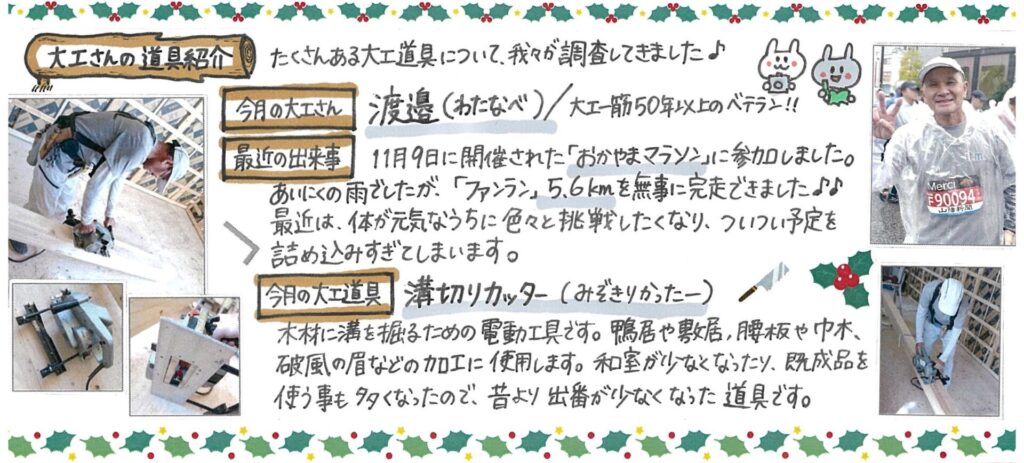 大工さんの道具紹介
たくさんある大工道具について、我々が調査してきました♪
今月の大工さん 渡邉(わたなべ)/大工一筋50年以上のベテラン!!
最近の出来事 11月9日に開催された「おかやまマラソン」に参加しました。
あいにくの雨でしたが、「ファンラン」5.6kmを無事に完走できました♪♪
最近は、体が元気なうちに色々と挑戦したくなり、ついつい予定を
詰め込みすぎてしまいます。
今月の大工道具 溝切りカッター(みぞきりかったー)
木材に溝を掘るための電動工具です。鴨居や敷居、腰板や巾木、
破風の眉などの加工に使用します。和室が少なくなったり、既成品を
使う事も多くなったので、昔より出番が少なくなった道具です。
Merci
90094
山陽新聞